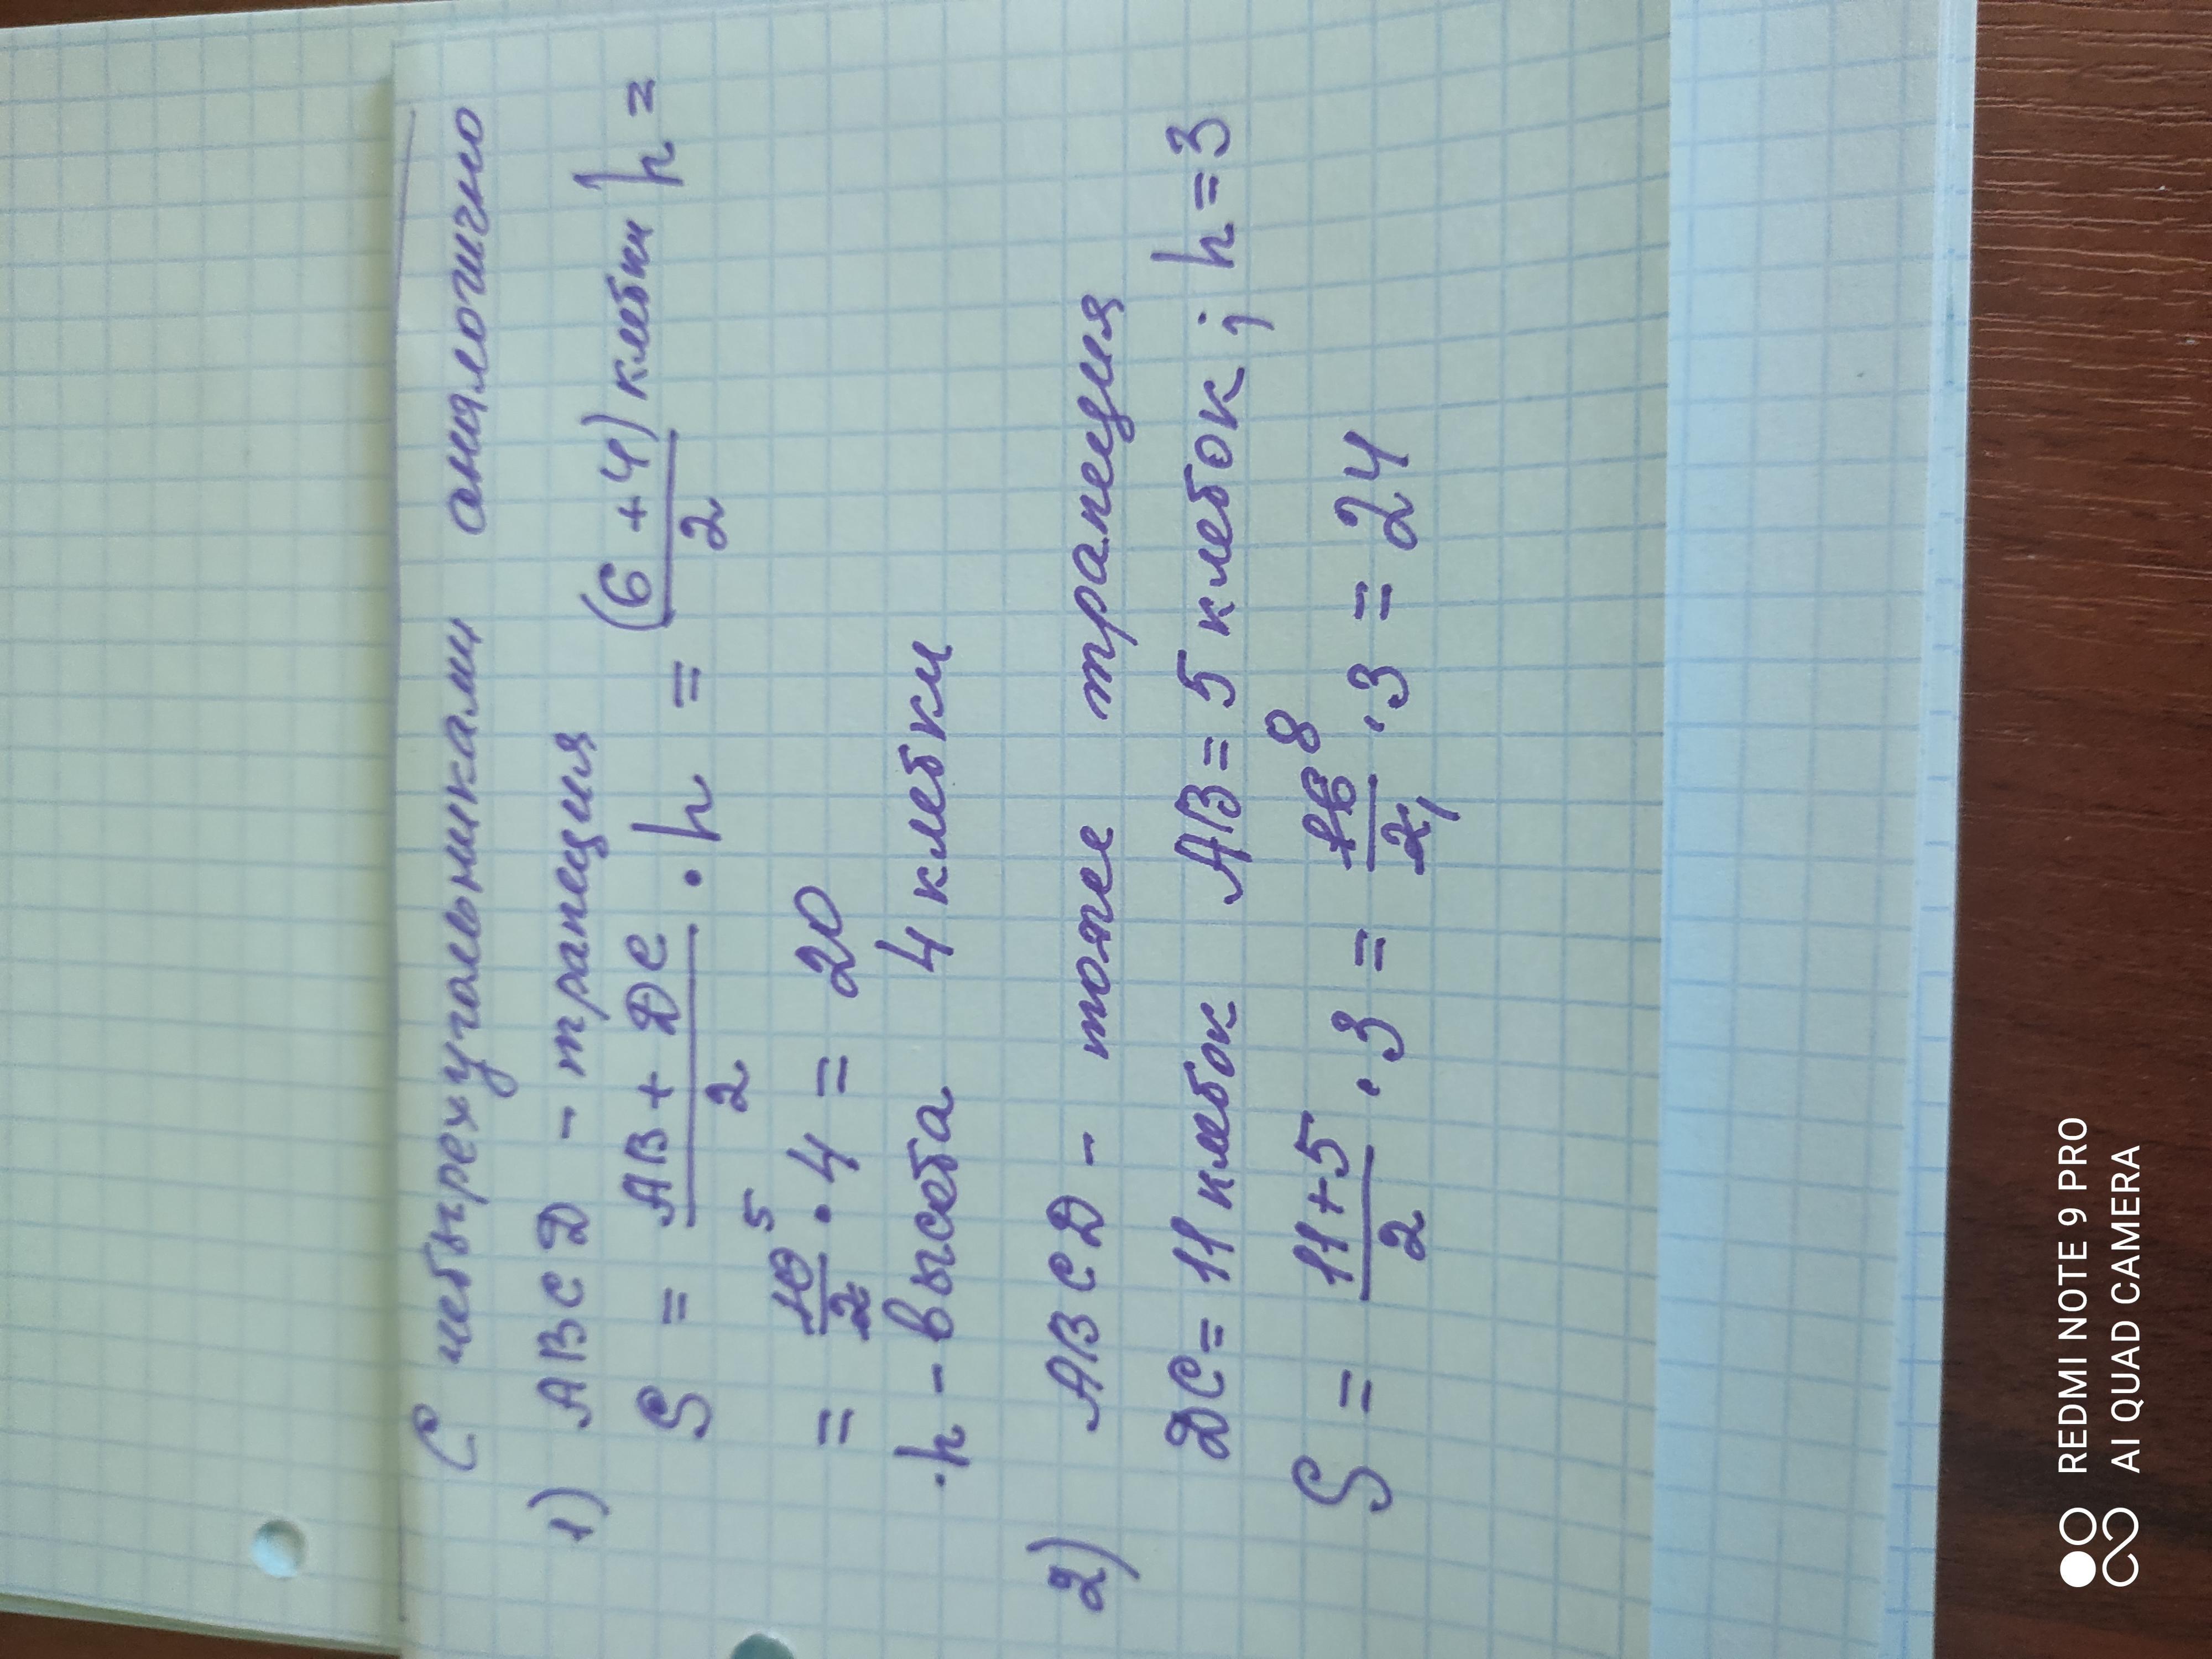 С четырехугольниками аналогично
1) ABCD - трапеция
S = (AB + DC)/2 · h = (6 + 4)/2 клетки h =
= 10/2 5 · 4 = 20
·h - высота 4 клетки
2) ABCD - тоже трапеция
DC = 11 клеток AB = 5 клеток; h = 3
S = (11 + 5)/2 · 3 = 16 8/2 1 · 3 = 24
REDMI NOTE 9 PRO
AI QUAD CAMERA